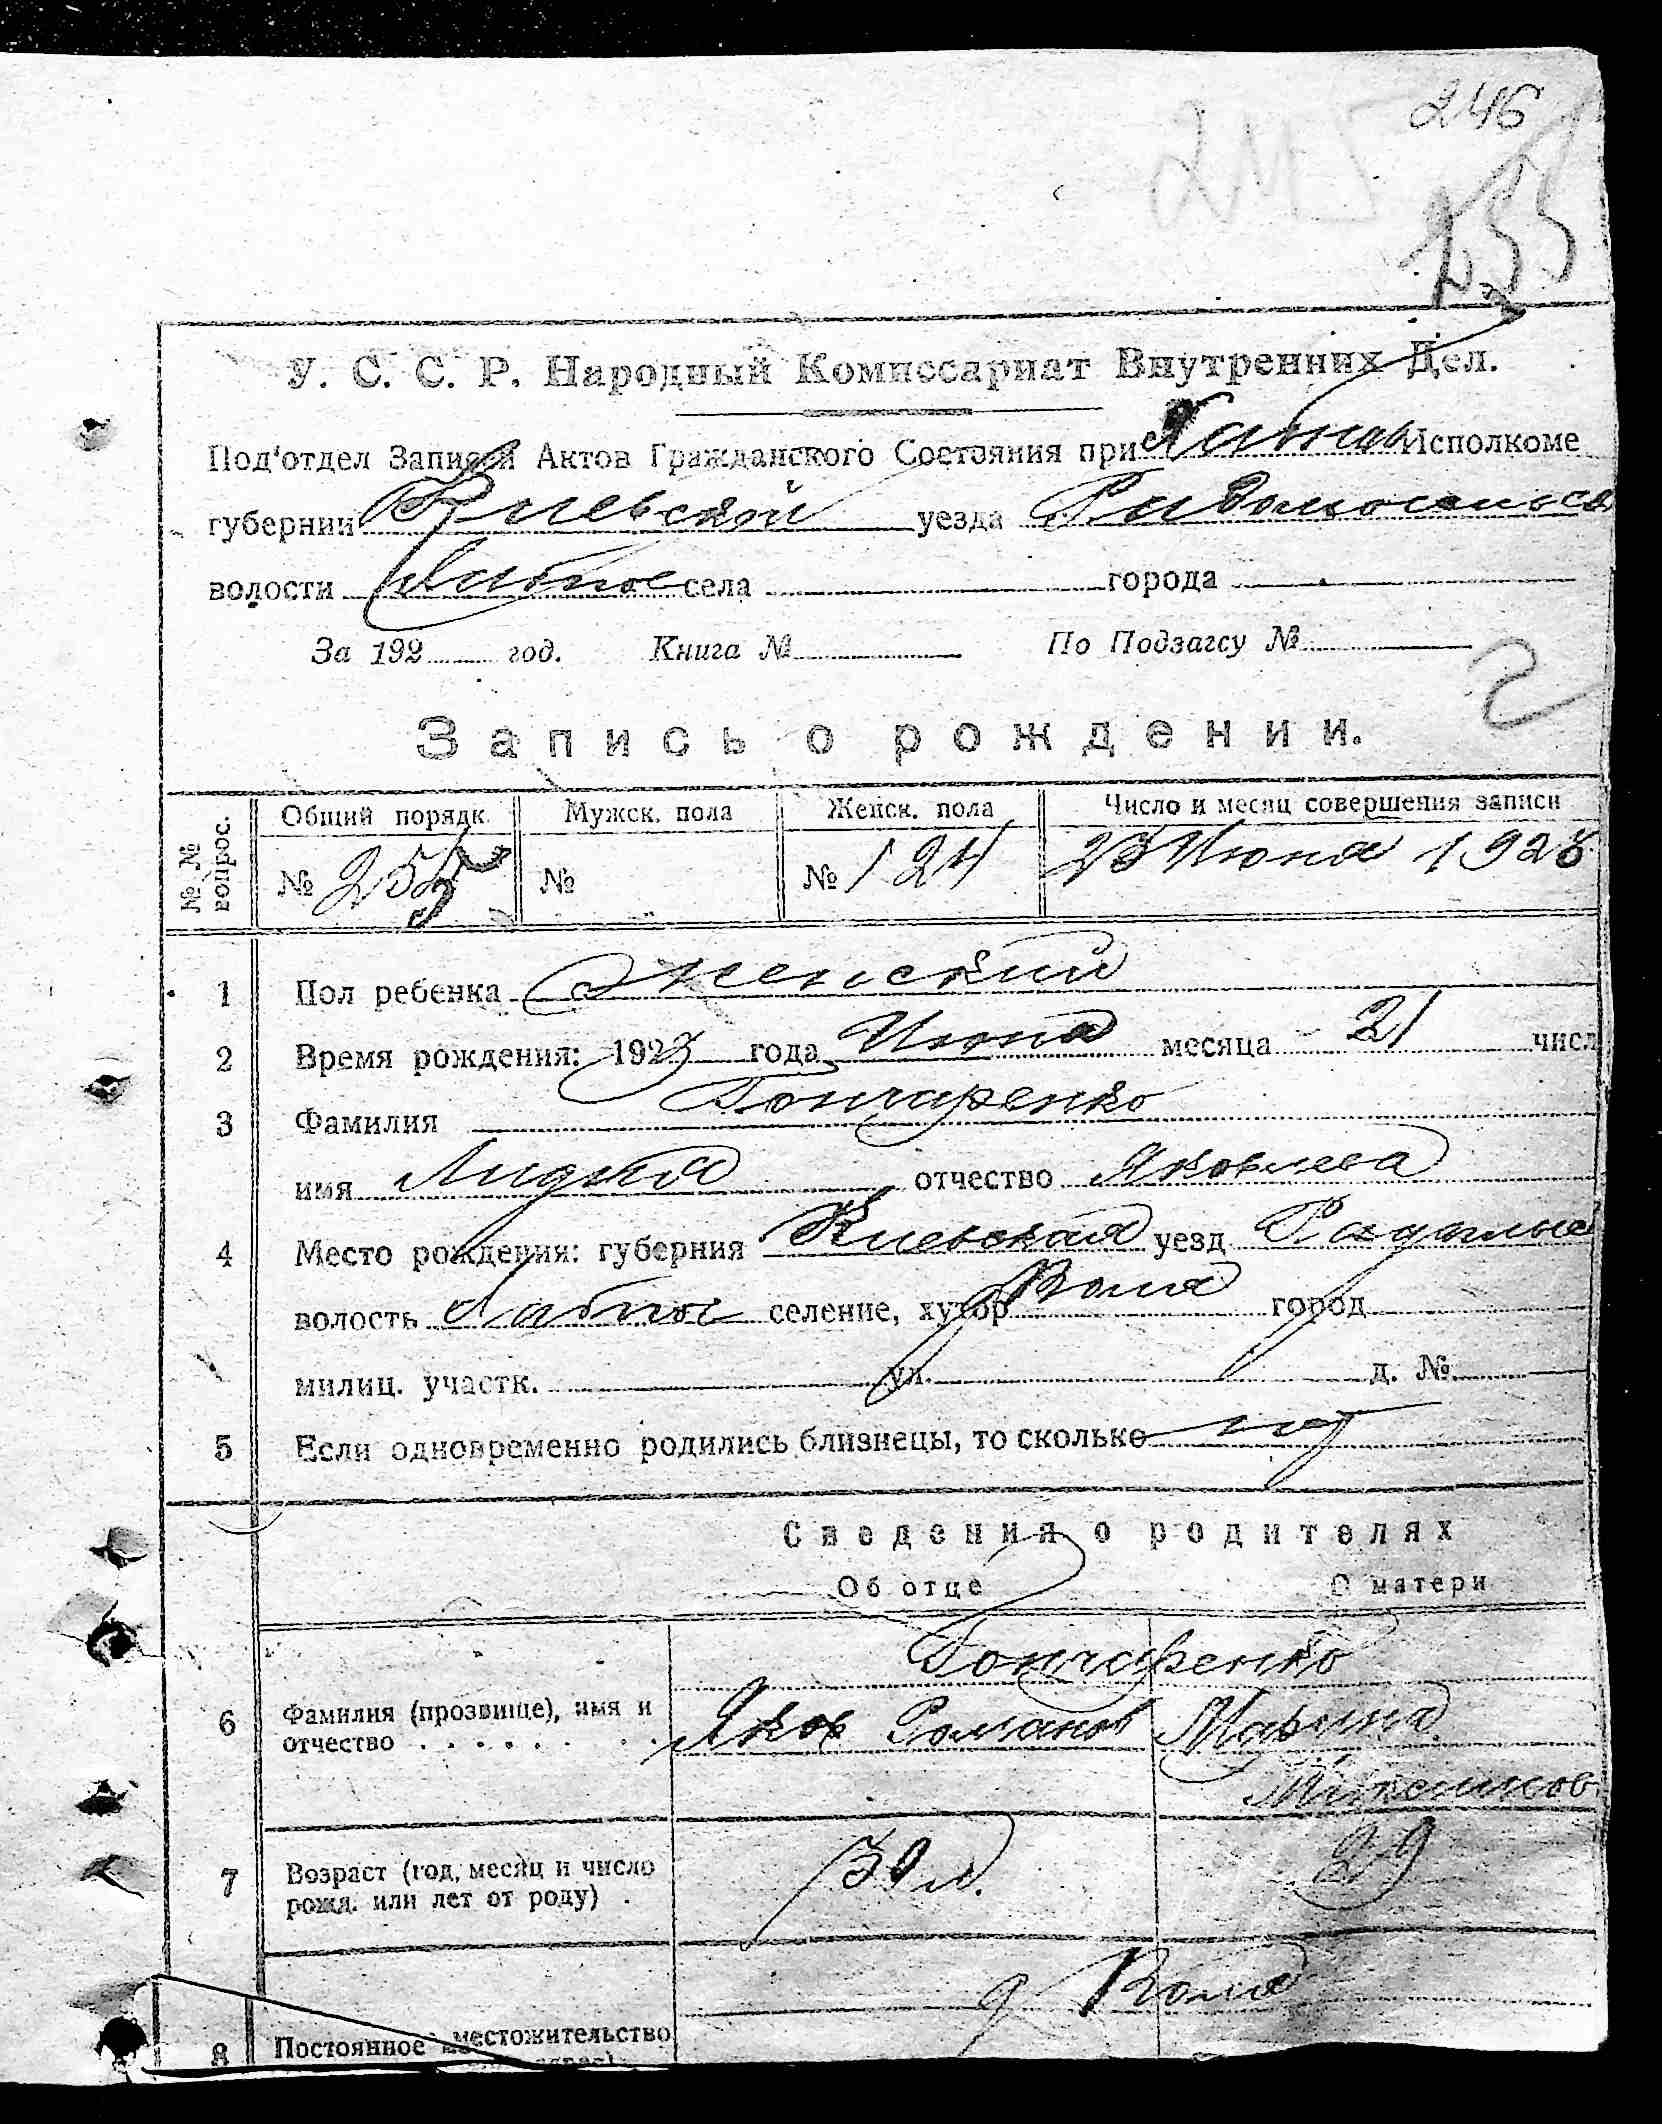 246
245
255
У. С. С. Р. Народный Комиссариат Внутренних Дел.
Под'отдел Записи Актов Гражданского Состояния при Хабнов Исполкоме
губернии Киевской уезда
волости Хабное села города
За 192 год. Книга № По Подзагсу №
Запись о рождении.
№ № вопрос. Общий порядк. Мужск. пола Женск. пола Число и месяц совершения записи
№ 255 № № 124 23 Июня 1923
1 Пол ребенка Женский
2 Время рождения: 1923 года Июня месяца 21 числ
3 Фамилия Гончаренко
имя Лидия отчество Яковлева
4 Место рождения: губерния Киевская уезд
волость Хабное селение, хутор Воля город
милиц. участк. ул. д. №
5 Если одновременно родились близнецы, то сколько нет
Сведения о родителях
Об отце О матери
Гончаренко
6 Фамилия (прозвище), имя и отчество Яков Романов Марина
Максимов
7 Возраст (год, месяц и число рожд. или лет от роду) 39 л. 29
д Воля
8 Постоянное местожительство